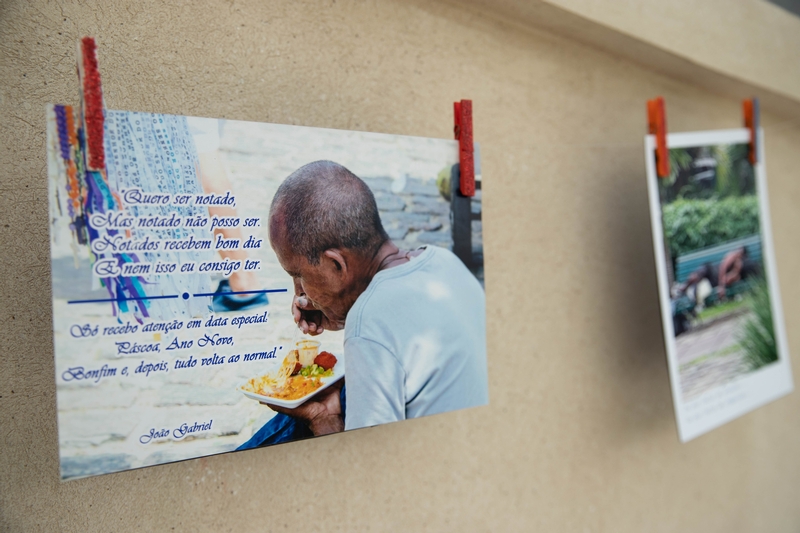 "Quero ser notado,
Mas notado não posso ser.
Notados recebem bom dia
E nem isso eu consigo ter.
Só recebo atenção em data especial:
Páscoa, Ano Novo,
Bonfim e, depois, tudo volta ao normal."
João Gabriel